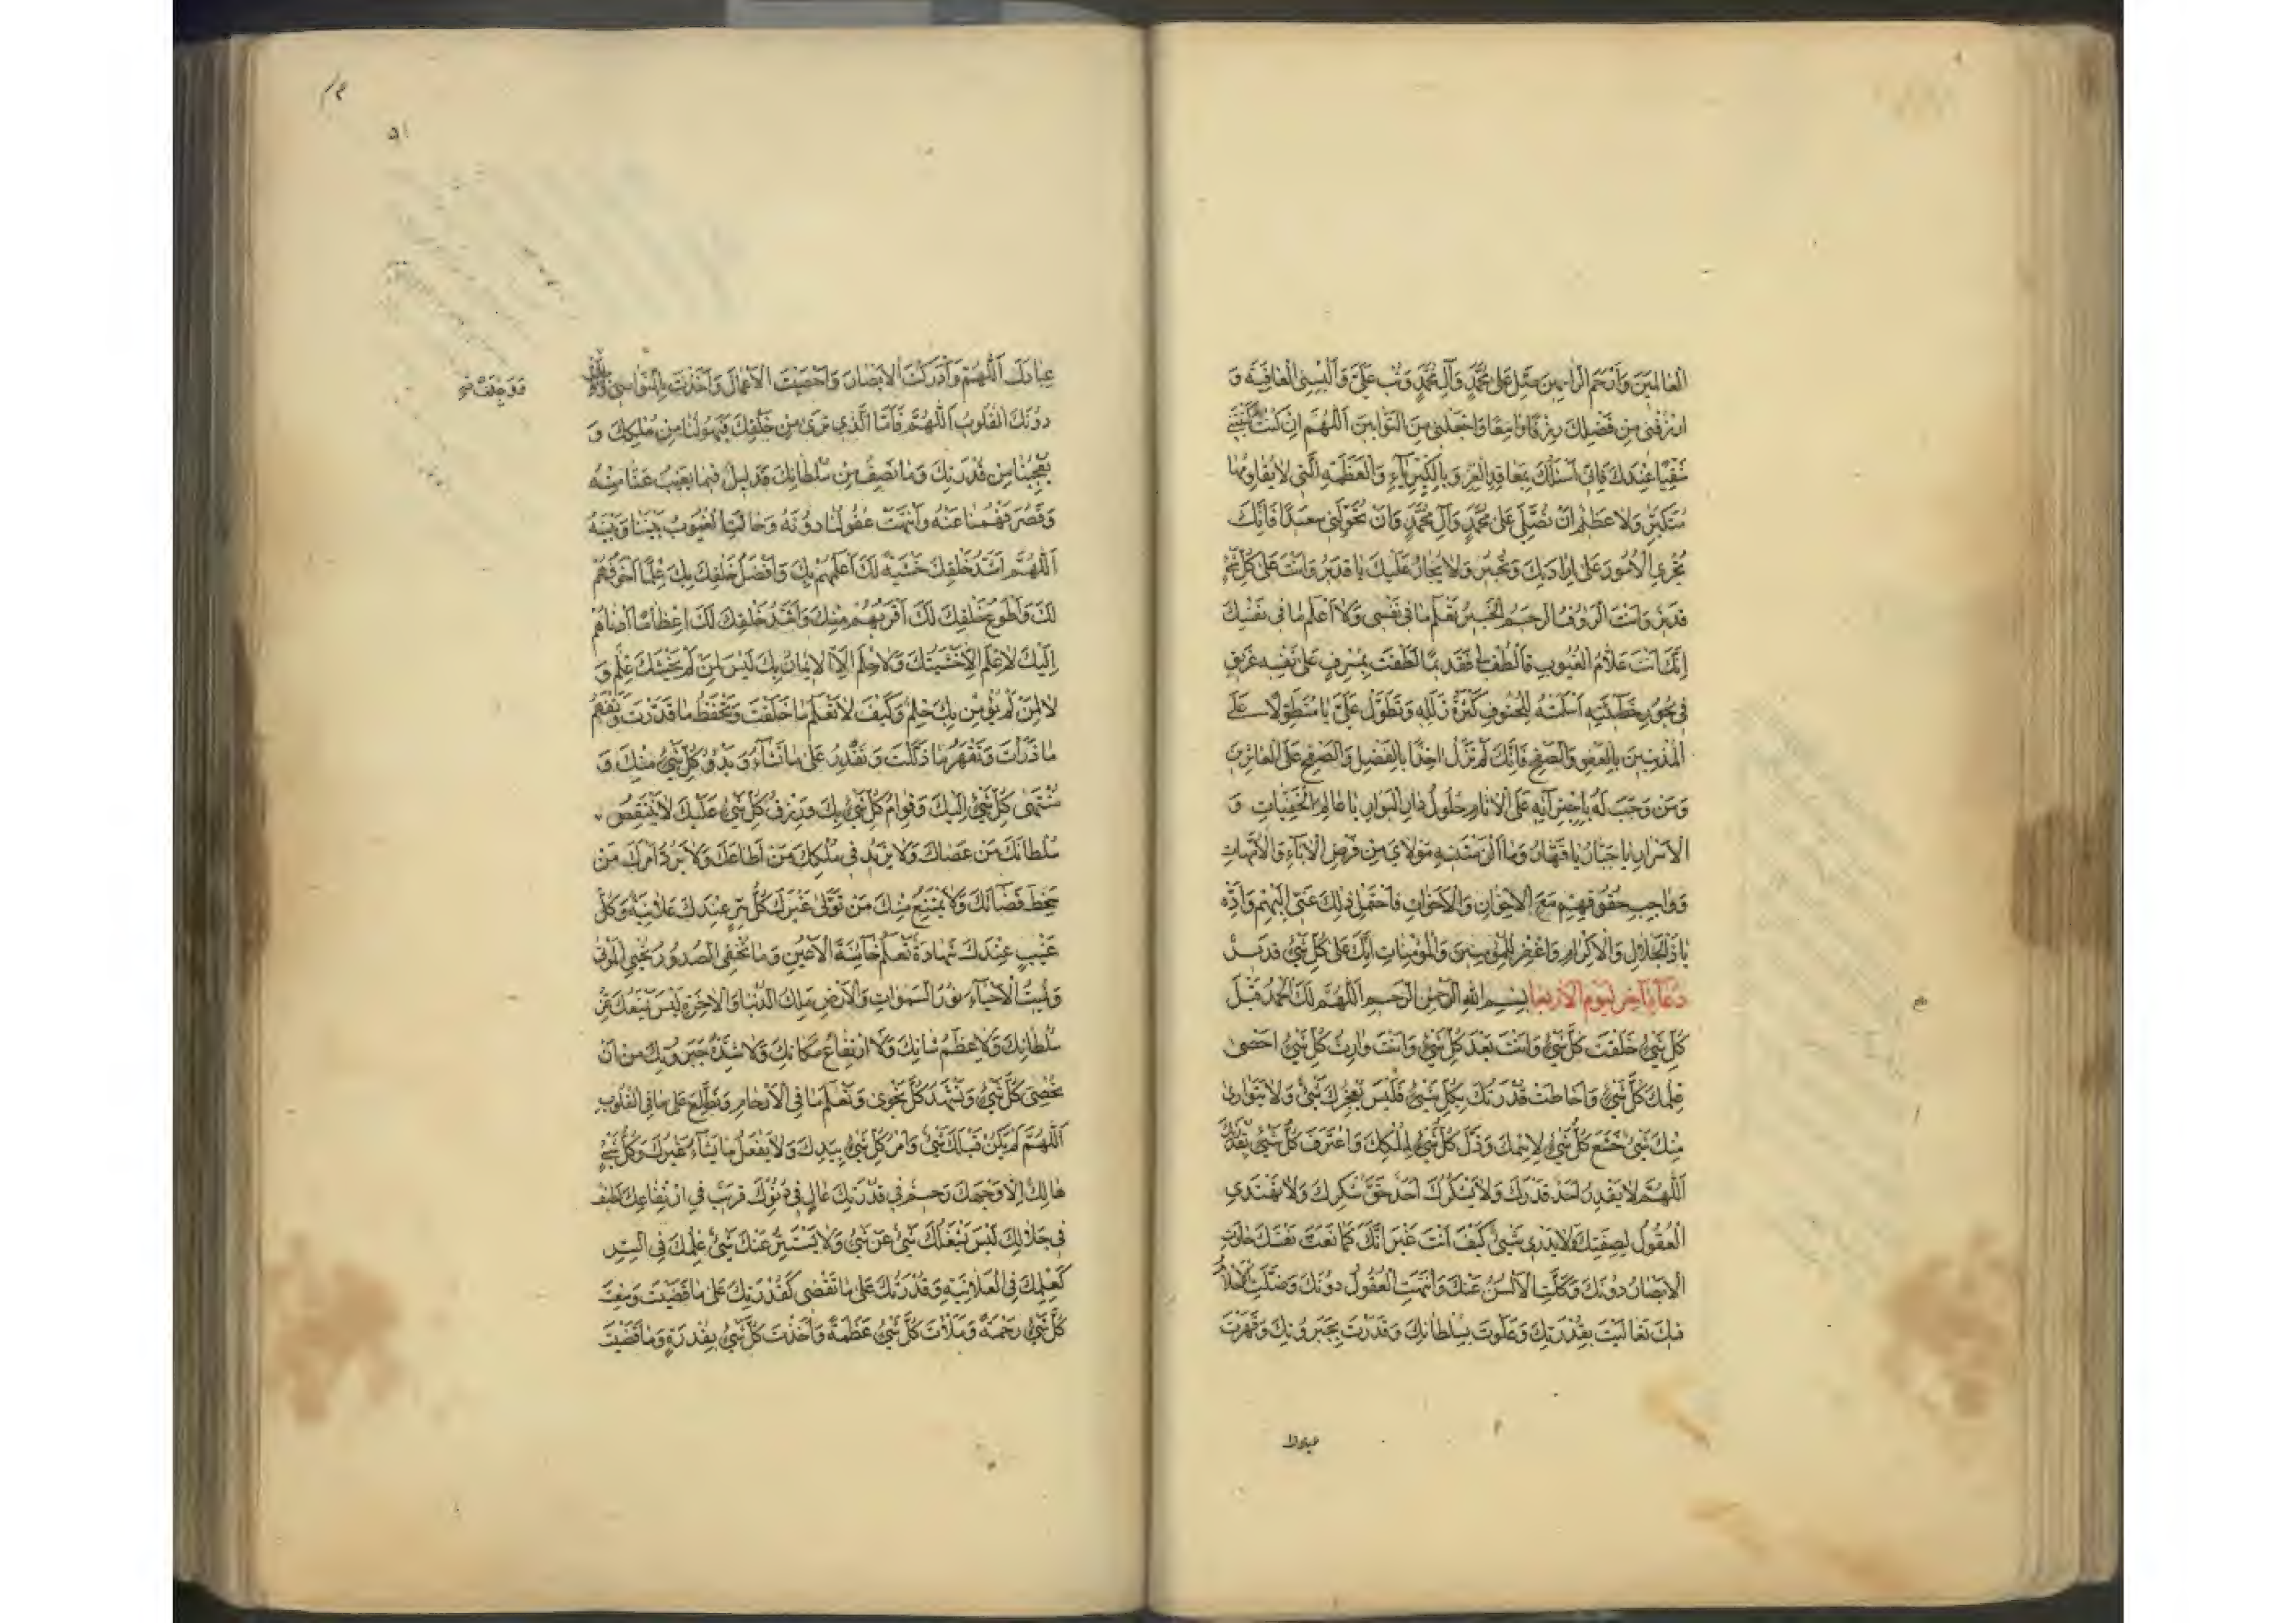 العالمين وارحم الراحمين صل على محمد وآل محمد وتب علي وألبسني العافية و
ارزقني من فضلك رزقا واسعا واجعلني من التوابين اللهم ان كنت كتبتني
شقيا عندك فاني اسئلك بمعاقد العز وبالكبرياء والعظمة التي لا يقاومها
متكبر ولا عظيم ان تصلي على محمد وآل محمد وان تحولني سعيدا فانك
تجري الأمور على ارادتك وتجير ولا يجار عليك يا قدير وانت على كل شئ
قدير وانت الرؤف الرحيم الخبير تعلم ما في نفسي ولا اعلم ما في نفسك
انك انت علام الغيوب فالطف لي فقد بما لطفت بمسرف على نفسه غريق
في بحور خطيئته اسلمته للحتوف كثرة زلله وتطول علي يا متطولا على
المذنبين بالعفو والصفح فانك لم تزل اخذا بالفضل والصفح على العاثرين
ومن وجب له باجترائه على الاثام حلول دار البوار يا عالم الخفيات و
الاسرار يا جبار يا قهار وما الزمتنيه مولاي من فرض الآباء والأمهات
وواجب حقوقهم مع الاخوان والاخوات فاحتمل ذلك عني اليهم واده
يا ذا الجلال والاكرام واغفر للمؤمنين والمؤمنات انك على كل شئ قدير
دعاء آخر ليوم الاربعا بسم الله الرحمن الرحيم اللهم لك الحمد قبل
كل شئ خلقت كل شئ وانت بعد كل شئ وانت وارث كل شئ احصى
علمك كل شئ واحاطت قدرتك بكل شئ فليس يعجزك شئ ولا يتوارى
منك شئ خشع كل شئ لاسمك وذل كل شئ لملكك واعترف كل شئ بقدرتك
اللهم لا يقدر احد قدرك ولا يشكرك احد حق شكرك ولا تهتدي
العقول لصفتك ولا يدري شئ كيف انت غير انك كما نعت نفسك حارت
الابصار دونك وكلت الألسن عنك وانتهت العقول دونك وضلت الاحلام
فيك تعاليت بقدرتك وعلوت بسلطانك وقدرت بجبروتك وقهرت
عبادك
عبادك اللهم وادركت الابصار واحصيت الاعمال واخذت بالنواصي
دونك القلوب اللهم فاما الذي نرى من خلقك فيهولنا من ملكك و
يعجبنا من قدرتك وما نصف من سلطانك فدليل فيما يغيب عنا منه
وقصر فهمنا عنه وانتهت عقولنا دونه وحالت الغيوب بيننا وبينه
اللهم اشد خلقك خشية لك اعلمهم بك وافضل خلقك بك علما اخوفهم
لك واطوع خلقك لك اقربهم منك واشد خلقك لك اعظاما ادناهم
اليك لا علم الا خشيتك ولا حلم الا الايمان بك ليس لمن لم يخشك علم و
لا لمن لم يؤمن بك حلم وكيف لا تعلم ما خلقت وتحفظ ما قدرت وتفهم
ما ذرأت وتقهر ما ذللت وتقدر على ما تشاء وبدؤ كل شئ منك و
منتهى كل شئ اليك وقوام كل شئ بك ورزق كل شئ عليك لا ينتقص
سلطانك من عصاك ولا يزيد في ملكك من اطاعك ولا يرد امرك من
سخط قضائك ولا يمتنع منك من تولى غيرك كل سر عندك علانية وكل
غيب عندك شهادة تعلم خائنة الاعين وما تخفي الصدور تحيي الموتى
وتميت الاحياء نور السموات والارض ملك الدنيا والآخرة ليس يمنعك عز
سلطانك ولا عظم شانك ولا ارتفاع مكانك ولا شدة جبروتك من ان
تحصي كل شئ وتشهد كل نجوى وتعلم ما في الارحام وتطلع على ما في القلوب
اللهم لم يكن قبلك شئ وامر كل شئ بيدك ولا يفعل ما يشاء غيرك وكل شئ
هالك الا وجهك رحيم في قدرتك عال في دنوك قريب في ارتفاعك لطيف
في جلالك ليس يشغلك شئ عن شئ ولا يستتر عنك شئ علمك في السر
كعلمك في العلانية وقدرتك على ما تقضي كقدرتك على ما قضيت وسعت
كل شئ رحمة وملأت كل شئ عظمة واخذت كل شئ بقدرة وما قضيت